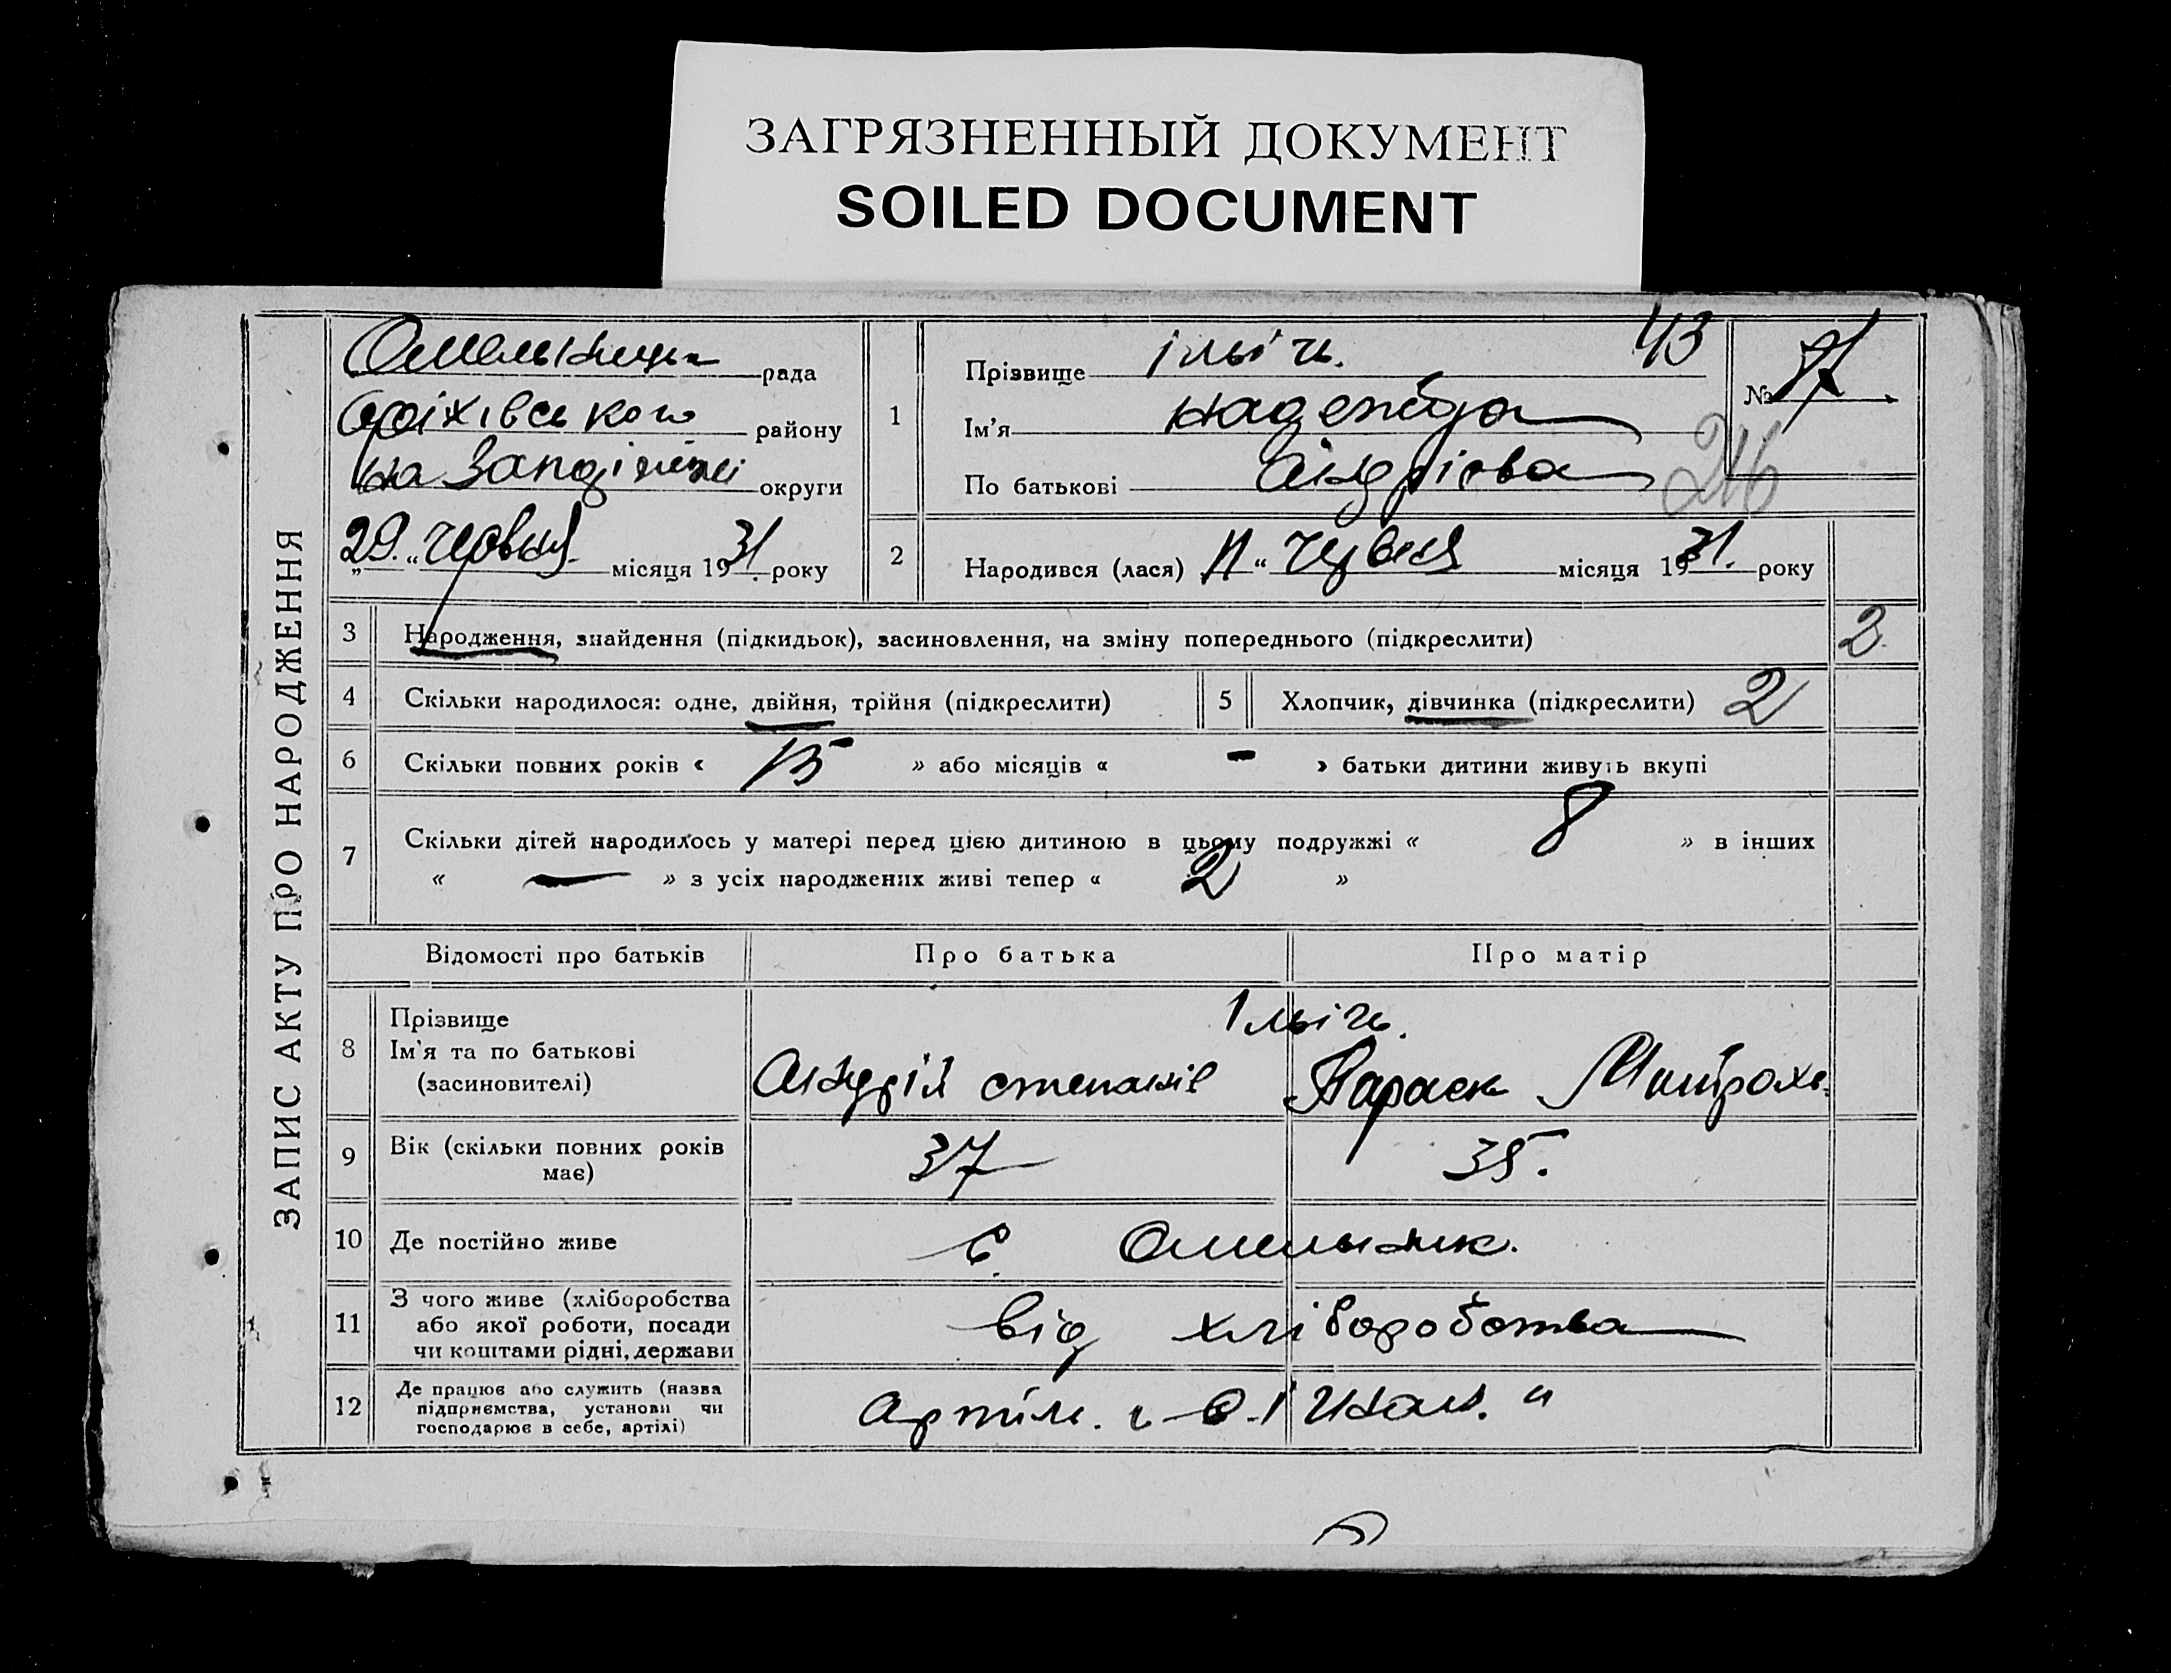 ЗАГРЯЗНЕННЫЙ ДОКУМЕНТ
SOILED DOCUMENT
ЗАПИС АКТУ ПРО НАРОДЖЕННЯ
рада
Оріхівського району
на округи
„29." Червня місяця 1931. року
1
Прізвище Ільічь. 43
Ім'я Надежда
По батькові Андрієва
№
216
2
Народився (лася) „ 11 " Червня місяця 1931. року
3 Народження, знайдення (підкидьок), засиновлення, на зміну попереднього (підкреслити) 2
4 Скільки народилося: одне, двійня, трійня (підкреслити) 5 Хлопчик, дівчинка (підкреслити) 2
6 Скільки повних років « 15 » або місяців « - » батьки дитини живуть вкупі
7 Скільки дітей народилось у матері перед цією дитиною в цьому подружжі « 8 » в інших
« — » з усіх народжених живі тепер « 2 »
Відомості про батьків Про батька Про матір
8 Прізвище Ільічь.
Ім'я та по батькові
(засиновителі) Андрій степанів Параск Митрохв.
9 Вік (скільки повних років має) 37 35.
10 Де постійно живе с. Омельник.
11 З чого живе (хліборобства
або якої роботи, посади
чи коштами рідні, держави від хліборобства
12 Де працює або служить (назва
підприємства, установи чи
господарює в себе, артілі) Артіль.